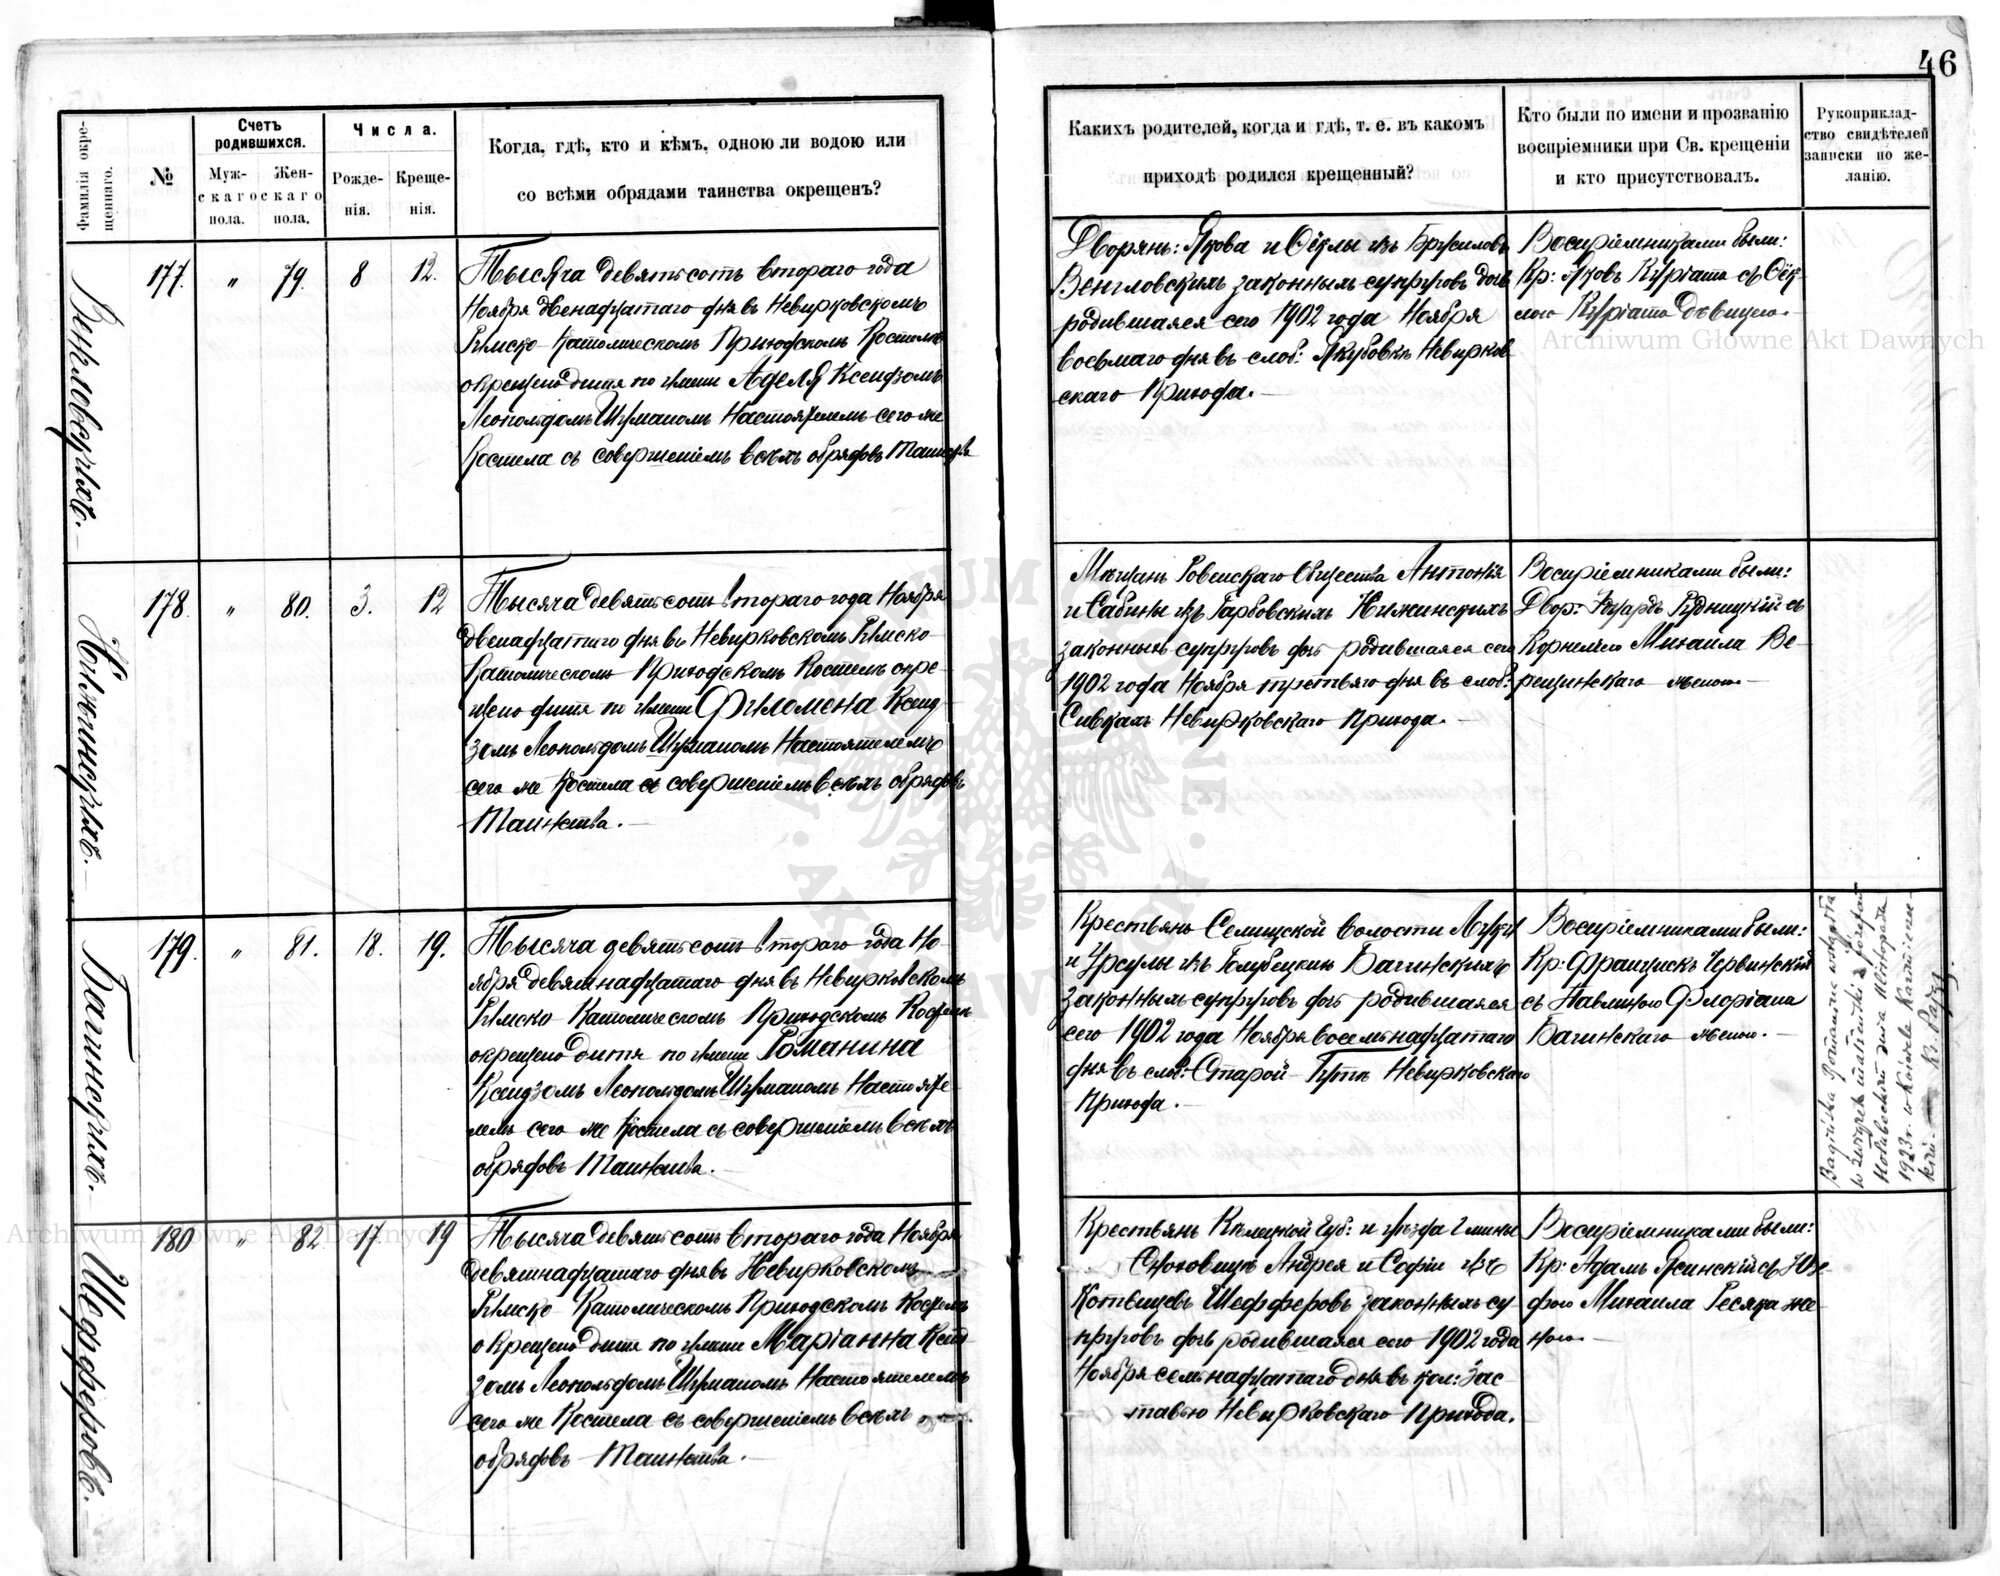 46
Фамилія окре-
щеннаго.
№
Счетъ
родившихся.
Муж-
скаго
пола.
Жен-
скаго
пола.
Числа.
Рожде-
нія.
Креще-
нія.
Когда, гдѣ, кто и кѣмъ, одною ли водою или
со всѣми обрядами таинства окрещенъ?
Какихъ родителей, когда и гдѣ, т. е. въ какомъ
приходѣ родился крещенный?
Кто были по имени и прозванію
воспріемники при Св. крещеніи
и кто присутствовалъ.
Рукоприклад-
ство свидѣтелей
записки по же-
ланію.
Венгловскихъ.
177. " 79. 8 12.
Тысяча девятьсотъ втораго года
Ноября двенадцатаго дня въ Невирковскомъ
Римско-Католическомъ Приходскомъ Костелѣ
окрещено дитя по имени Аделя Ксендзомъ
Леопольдомъ Шуманомъ Настоятелемъ сего же
Костела съ совершеніемъ всѣхъ обрядовъ Таинства
Дворянъ: Якова и Ѳёклы изъ Брусиловъ
Венгловскихъ законныхъ супруговъ дочь
родившаяся сего 1902 года Ноября
восьмаго дня въ слоб: Якубовкѣ Невирков
скаго Прихода.
Воспріемниками были:
Кр: Яковъ Курiата съ Ѳёк
лою Курiата дѣвицею.
Нижинскихъ.
178. " 80. 3. 12
Тысяча девятьсотъ втораго года Ноября
двенадцатаго дня въ Невирковскомъ Римско
Католическомъ Приходскомъ Костелѣ окре-
щено дитя по имени Филомена Ксенд
зомъ Леопольдомъ Шуманомъ Настоятелемъ
сего же Костела съ совершеніемъ всѣхъ обрядовъ
Таинства.
Мѣщанъ Ровенскаго Общества Антонія
и Сабины изъ Гарбовскихъ Нижинскихъ
законныхъ супруговъ дочь родившаяся сего
1902 года Ноября третьяго дня въ слоб:
Сивкахъ Невирковскаго Прихода.
Воспріемниками были:
Двор: Эдуардъ Рудницкій съ
Корнелею Михаила Ве-
рещинскаго женою.
Багинскихъ.
179. " 81. 18. 19.
Тысяча девятьсотъ втораго года Но-
ября девятнадцатаго дня въ Невирковскомъ
Римско Католическомъ Приходскомъ Костелѣ
окрещено дитя по имени Романина
Ксендзомъ Леопольдомъ Шуманомъ Настояте-
лемъ сего же Костела съ совершеніемъ всѣхъ
обрядовъ Таинства.
Крестьянъ Селищской волости Луки
и Урсулы изъ Голубецкихъ Багинскихъ
законныхъ супруговъ дочь родившаяся
сего 1902 года Ноября восемьнадцатаго
дня въ слоб: Старой Гутѣ Невирковскаго
Прихода.
Воспріемниками были:
Кр: Францискъ Червинскій
съ Павлиною Флоріана
Багинскаго женою.
Bagińska Romanina wstąpiła
w związek małżeński z Józefem
dnia Listopada
1923 r. w kościele
Шефферовъ.
180 " 82 17 19
Тысяча девятьсотъ втораго года Ноября
девятнадцатаго дня въ Невирковскомъ
Римско Католическомъ Приходскомъ Костелѣ
окрещено дитя по имени Маріанна Ксенд
зомъ Леопольдомъ Шуманомъ Настоятелемъ
сего же Костела съ совершеніемъ всѣхъ
обрядовъ Таинства.
Крестьянъ Кѣлецкой Губ: и уѣзда Гмины
Андрея и Софіи изъ
Котвицевъ Шефферовъ законныхъ су-
пруговъ дочь родившаяся сего 1902 года
Ноября семьнадцатаго дня въ кол: Зас-
тавью Невирковскаго Прихода.
Воспріемниками были:
Кр: Адамъ Ясинскій съ Юзе-
фою Михаила Гесяка же-
ною.
Archiwum Główne Akt Dawnych
Archiwum Główne Akt Dawnych